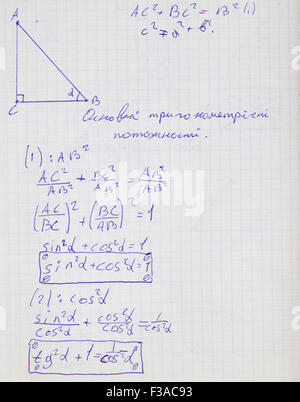 A
AC² + BC² = B² (1)
c² = a² + b²
α
C
B
Основні тригонометрічні
тотожності.
(1) : AB²
AC²/AB² + BC²/AB² = AB²/AB²
(AC/BC)² + (BC/AB)² = 1
sin²α + cos²α = 1
sin²α + cos²α = 1
(2) : cos²α
sin²α/cos²α + cos²α/cos²α = 1/cos²α
tg²α + 1 = 1/cos²α
alamy stock photo
F3AC93